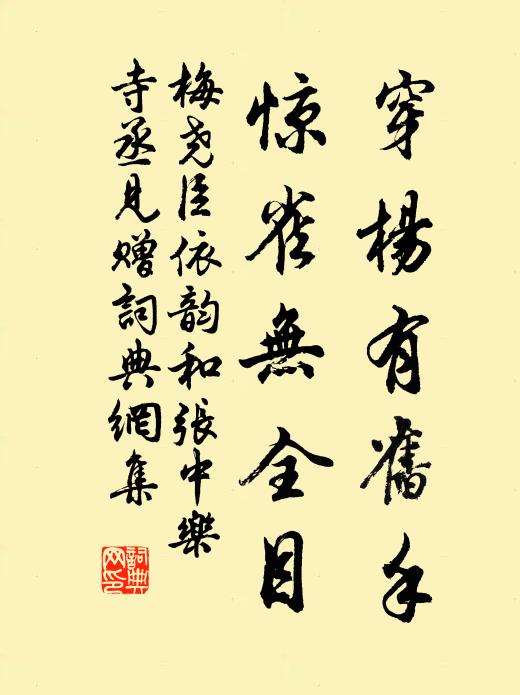 穿楊有舊手
惊雀無全目
梅堯臣依韵和張中樂
寺丞見贈詞典網集
詞典
网印